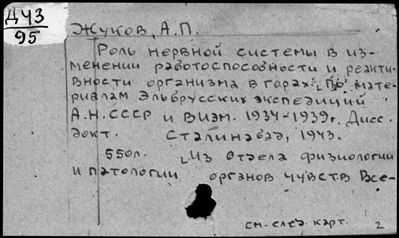 ДЧЗ
95
Жуков, А.П.
Роль нервной системы в из-
менении работоспособности и реакти-
вности организма в горах. [По мате-
риалам Эльбрусских экспедиций
А.Н.СССР и ВИЭМ. 1934-1939г. Дисс.
докт. Сталинабад, 1943.
550л. [Из Отдела физиологии
и патологии органов чувств Все-
см. след. карт. 2